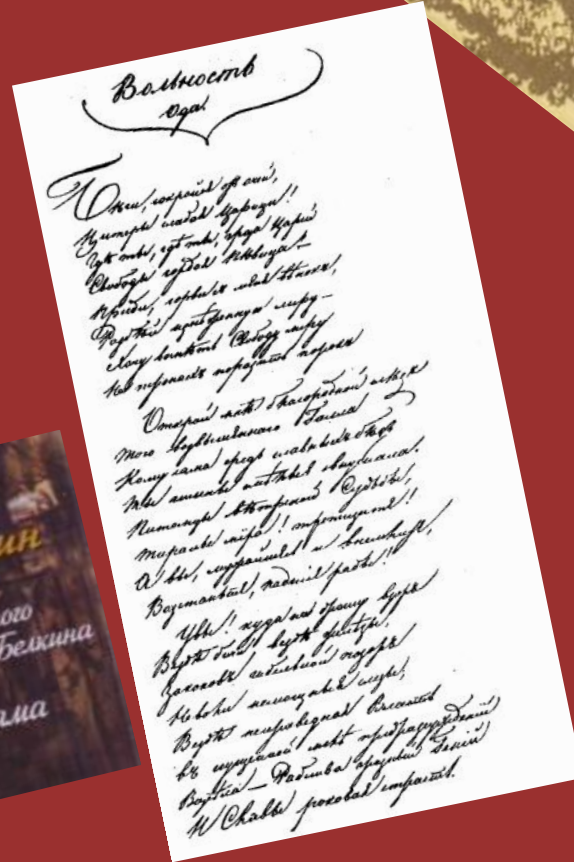 Вольность
Ода.
Бѣги, сокройся отъ очей,
Цитеры слабая Царица!
Гдѣ ты, гдѣ ты, гроза Царей
Свободы гордая пѣвица? —
Приди, сорви съ меня вѣнокъ,
Разбей изнѣженную лиру —
Хочу воспѣть Свободу міру
На тронахъ поразить порокъ
Открой мнѣ благородный слѣдъ
Того возвышеннаго Галла
Кому сама средь славныхъ бѣдъ
Ты гимны смѣлые внушала.
Питомцы вѣтреной Судьбы,
Тираны міра! трепещите!
А вы, мужайтесь и внемлите,
Возстаньте, падшіе рабы!
Увы! куда ни брошу взоръ
Вездѣ бичи, вездѣ желѣзы,
Законовъ гибельный позоръ
Неволи немощныя слезы;
Вездѣ неправедная Власть
въ сгущенной мглѣ предразсужденій
Возсѣла — Рабства грозный Геній
И Славы роковая страсть.
ин
ого
Белкина
ама